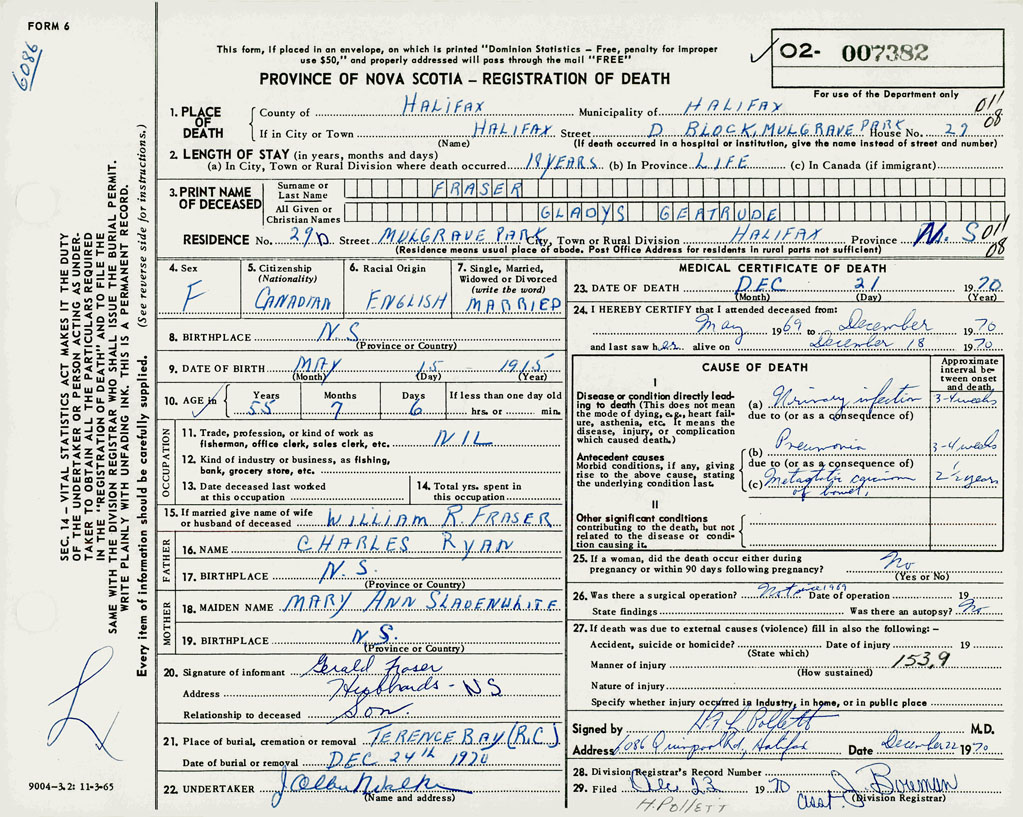 FORM 6
6086
This form, if placed in an envelope, on which is printed "Dominion Statistics – Free, penalty for improper
use $50," and properly addressed will pass through the mail "FREE"
PROVINCE OF NOVA SCOTIA – REGISTRATION OF DEATH
O2- 007382
For use of the Department only
011
08
1. PLACE OF DEATH
County of HALIFAX Municipality of HALIFAX
If in City or Town HALIFAX Street D BLOCK, MULGRAVE PARK House No. 29
(Name) (If death occurred in a hospital or institution, give the name instead of street and number)
2. LENGTH OF STAY (in years, months and days)
(a) In City, Town or Rural Division where death occurred 19 YEARS (b) In Province LIFE (c) In Canada (if immigrant)
3. PRINT NAME OF DECEASED
Surname or Last Name FRASER
All Given or Christian Names GLADYS GEATRUDE
RESIDENCE No. 29D Street MULGRAVE PARK City, Town or Rural Division HALIFAX Province N.S
011
08
(Residence means usual place of abode. Post Office Address for residents in rural parts not sufficient)
4. Sex F
5. Citizenship (Nationality) CANADIAN
6. Racial Origin ENGLISH
7. Single, Married, Widowed or Divorced (write the word) MARRIED
8. BIRTHPLACE N.S
(Province or Country)
9. DATE OF BIRTH MAY 15 1915
(Month) (Day) (Year)
10. AGE in Years 55 Months 7 Days 6 If less than one day old hrs. or min.
OCCUPATION
11. Trade, profession, or kind of work as fisherman, office clerk, sales clerk, etc. NIL
12. Kind of industry or business, as fishing, bank, grocery store, etc.
13. Date deceased last worked at this occupation
14. Total yrs. spent in this occupation
15. If married give name of wife or husband of deceased WILLIAM R. FRASER
FATHER
16. NAME CHARLES RYAN
17. BIRTHPLACE N.S.
(Province or Country)
MOTHER
18. MAIDEN NAME MARY ANN SLADENWHITE
19. BIRTHPLACE N.S.
(Province or Country)
20. Signature of informant Gerald Fraser
Address Hubbards - NS
Relationship to deceased Son.
21. Place of burial, cremation or removal TERENCE BAY (R.C.)
Date of burial or removal DEC 24th 1970
22. UNDERTAKER
(Name and address)
MEDICAL CERTIFICATE OF DEATH
23. DATE OF DEATH DEC 21 1970
(Month) (Day) (Year)
24. I HEREBY CERTIFY that I attended deceased from:
May 1969 to December 1970
and last saw her alive on December 18 1970
CAUSE OF DEATH
Approximate interval between onset and death
I
Disease or condition directly leading to death (This does not mean the mode of dying, e.g., heart failure, asthenia, etc. It means the disease, injury, or complication which caused death.)
(a) Urinary infection 3-4 weeks
due to (or as a consequence of)
Antecedent causes
Morbid conditions, if any, giving rise to the above cause, stating the underlying condition last.
(b) Pneumonia 3-4 weeks
due to (or as a consequence of)
(c) Metastatic carcinoma of bowel, 2½ years
II
Other significant conditions contributing to the death, but not related to the disease or condition causing it.
25. If a woman, did the death occur either during pregnancy or within 90 days following pregnancy? No
(Yes or No)
26. Was there a surgical operation? Not since 1969 Date of operation 19
State findings Was there an autopsy? No
27. If death was due to external causes (violence) fill in also the following: –
Accident, suicide or homicide? Date of injury 19
(State which)
Manner of injury 153.9
(How sustained)
Nature of injury
Specify whether injury occurred in industry, in home, or in public place
Signed by H. A. L. Pollett M.D.
Address 1086 Quinpool Rd, Halifax Date December 22 1970
28. Division Registrar's Record Number
29. Filed Dec 23 1970 Asst. J. Bowman
(Division Registrar)
H. POLLETT
SEC. 14 – VITAL STATISTICS ACT MAKES IT THE DUTY
OF THE UNDERTAKER OR PERSON ACTING AS UNDER-
TAKER TO OBTAIN ALL THE PARTICULARS REQUIRED
IN THE "REGISTRATION OF DEATH" AND TO FILE THE
SAME WITH THE DIVISION REGISTRAR WHO SHALL ISSUE THE BURIAL PERMIT.
WRITE PLAINLY WITH UNFADING INK. THIS IS A PERMANENT RECORD.
Every item of information should be carefully supplied. (See reverse side for instructions.)
9004-3.2: 11-3-65